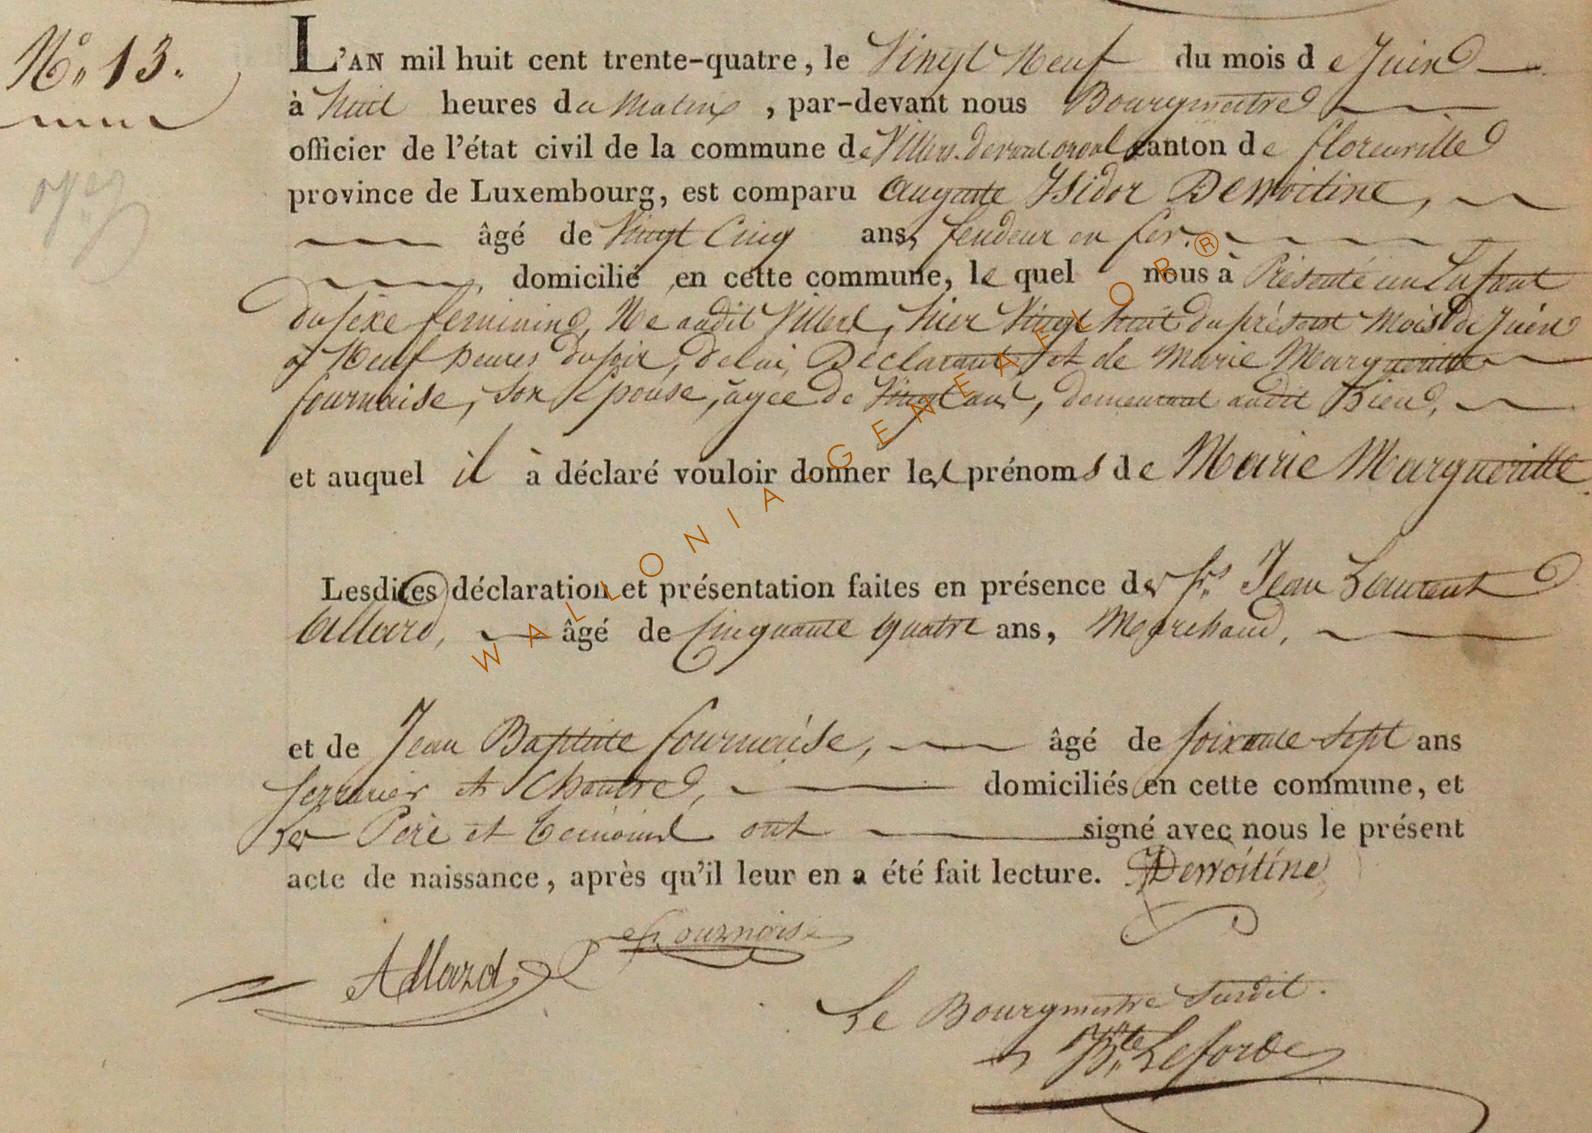 N.° 13.
L'AN mil huit cent trente-quatre, le Vingt Neuf du mois de Juin
à huit heures du Matin, par-devant nous Bourgmestre
officier de l'état civil de la commune de Villers-devant orval canton de florenville
province de Luxembourg, est comparu Auguste Isidor Derroitine,
âgé de Vingt Cinq ans, fendeur en fer.
domicilié en cette commune, le quel nous à Présenté un Enfant
du sexe feminin, Né audit Villers, hier Vingt huit du présent Mois de Juin
à Neuf heures du soir, de lui Déclarant et de Marie Margueritte
fournaise, son Epouse, agée de Vingt ans, demeurant audit Lieu,
et auquel il à déclaré vouloir donner les prénoms de Marie Margueritte.
Lesdites déclaration et présentation faites en présence des srs Jean Laurent
Allard, âgé de Cinquante quatre ans, Marchand,
et de Jean Baptiste fournaise, âgé de soixante sept ans
serrurier et Chantre, domiciliés en cette commune, et
Les Père et temoins ont signé avec nous le présent
acte de naissance, après qu'il leur en a été fait lecture. Derroitine
Fournaise
Allard
Le Bourgmestre Susdit.
Bte Leforde
WALLONIA-GENEAFLOR®